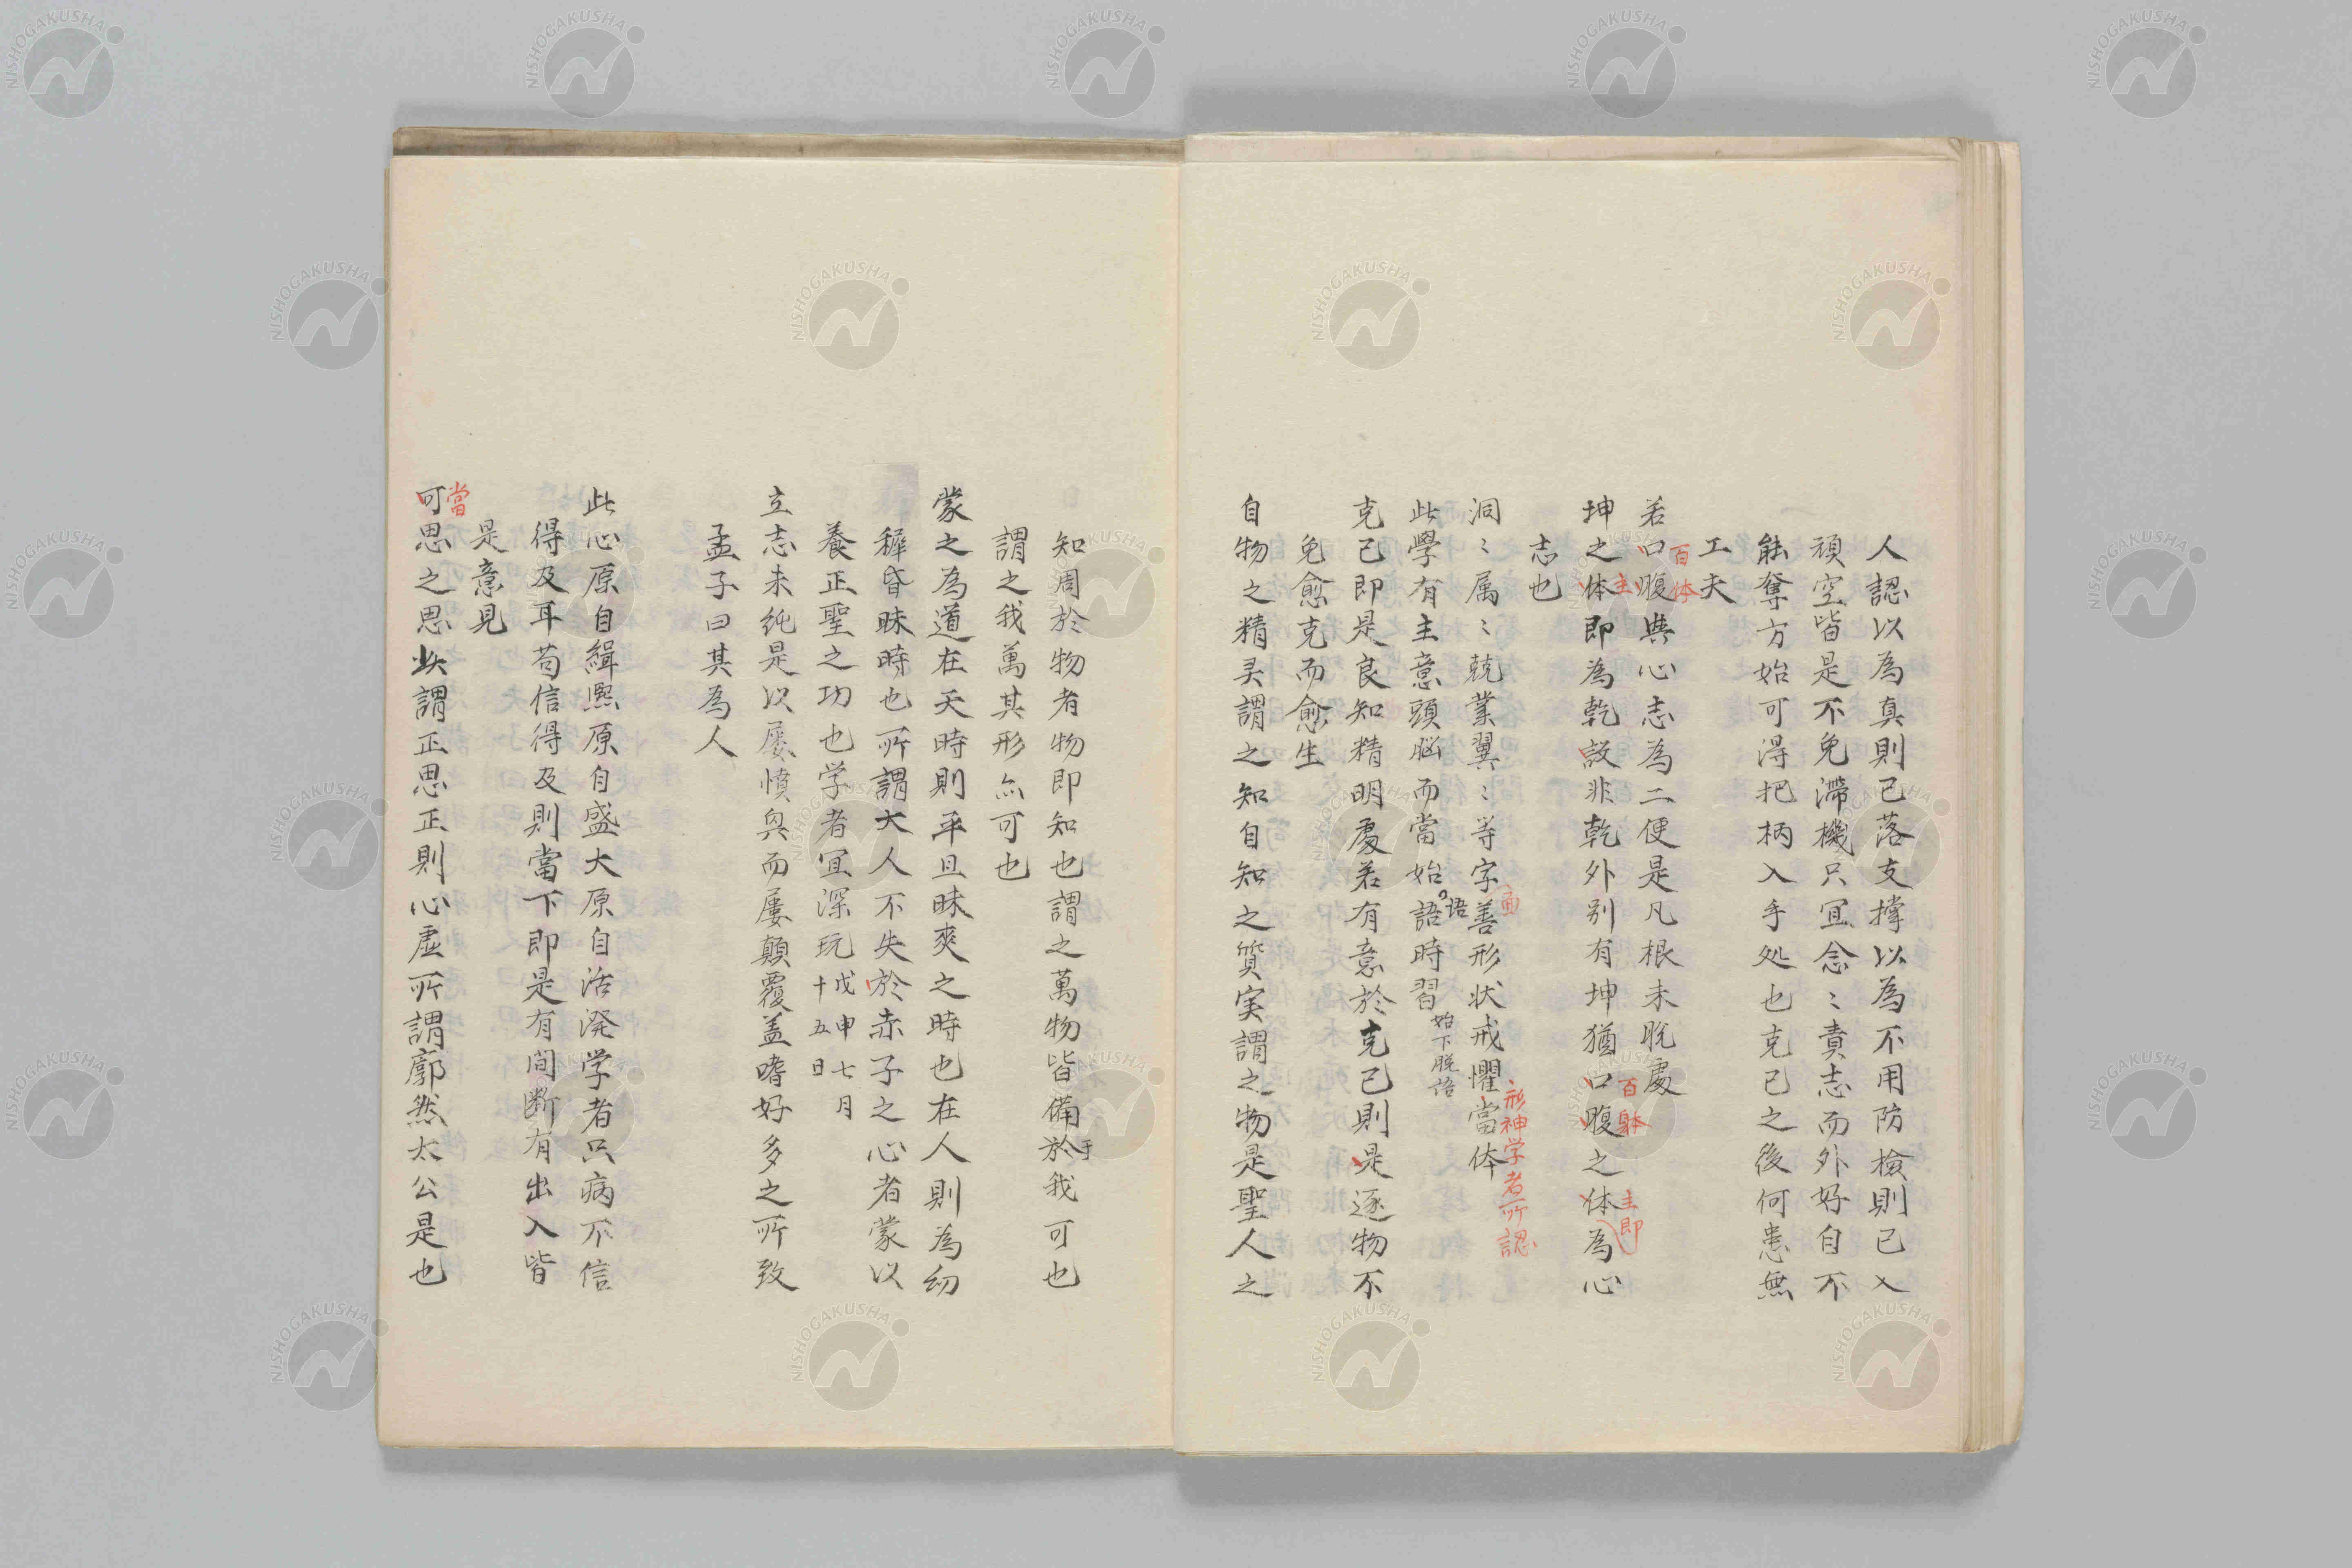 人認以為真則已落支撐以為不用防檢則已入
頑空皆是不免滯機只宜念〻責志而外好自不
能奪方始可得把柄入手処也克己之後何患無
工夫
百体
若口腹與心志為二便是凡根未脱處
主
百躰
主即
坤之体即為乾故非乾外别有坤猶口腹之体為心
志也
形神学者所認
洞〻属〻兢業翼〻等字善形状戒懼當体
語
此學有主意頭脳而當始語時習
始下脱語
克己即是良知精明處若有意於克己則是逐物不
免愈克而愈生
自物之精灵謂之知自知之質実謂之物是聖人之
知周於物者物即知也謂之萬物皆備於我可也
于
謂之我萬其形亦可也
蒙之為道在天時則平旦昧爽之時也在人則為幼
穉昏昧時也所謂大人不失於赤子之心者蒙以
養正聖之功也学者宜深玩
戊申七月
十五日
立志未純是以屡憤與而屡顛覆盖嗜好多之所致
孟子曰其為人
此心原自緝熙原自盛大原自活溌学者只病不信
得及耳苟信得及則當下即是有間断有出入皆
是意見
當
可思之思此謂正思正則心虚所謂廓然太公是也
NISHOGAKUSHA